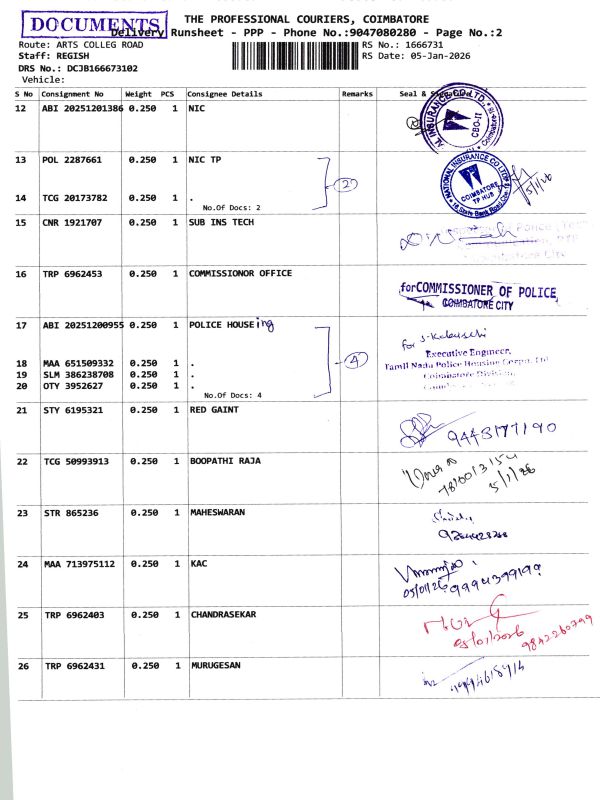 DOCUMENTS
THE PROFESSIONAL COURIERS, COIMBATORE
Delivery Runsheet - PPP - Phone No.:9047080280 - Page No.:2
Route: ARTS COLLEG ROAD
RS No.: 1666731
Staff: REGISH
RS Date: 05-Jan-2026
DRS No.: DCJB166673102
Vehicle:
S No Consignment No Weight PCS Consignee Details Remarks Seal &
12 ABI 20251201386 0.250 1 NIC
CBO-II
13 POL 2287661 0.250 1 NIC TP
2
NATIONAL INSURANCE CO LTD
COIMBATORE
TP HUB
5/1/26
14 TCG 20173782 0.250 1 .
No.Of Docs: 2
15 CNR 1921707 0.250 1 SUB INS TECH
16 TRP 6962453 0.250 1 COMMISSIONOR OFFICE
for COMMISSIONER OF POLICE
COIMBATORE CITY
17 ABI 20251200955 0.250 1 POLICE HOUSEing
for
Executive Engineer,
Tamil Nadu Police Housing Corpn. Ltd
Coimbatore Division,
4
18 MAA 651509332 0.250 1 .
19 SLM 386238708 0.250 1 .
20 OTY 3952627 0.250 1 .
No.Of Docs: 4
21 STY 6195321 0.250 1 RED GAINT
22 TCG 50993913 0.250 1 BOOPATHI RAJA
5/1/26
23 STR 865236 0.250 1 MAHESWARAN
24 MAA 713975112 0.250 1 KAC
05/01/26
25 TRP 6962403 0.250 1 CHANDRASEKAR
05/01/2026
9842260799
26 TRP 6962431 0.250 1 MURUGESAN